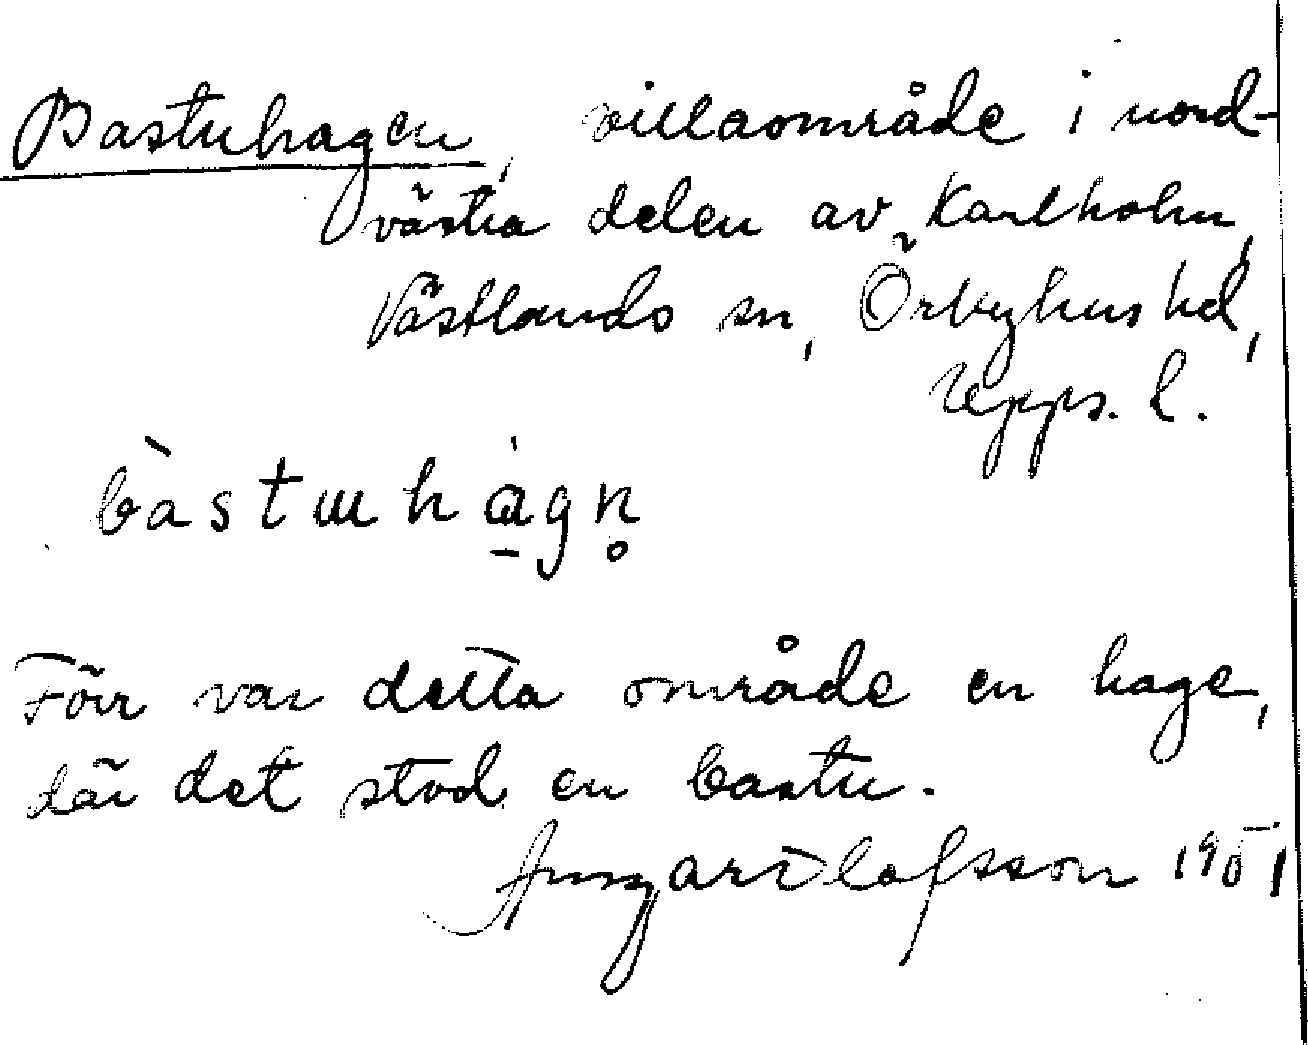 Bastuhagen, villaområde i nord-
västra delen av Karlholm,
Västlands sn, Örbyhus hd,
Upps. l.
bàstɯhàg̣n̥
Förr var detta område en hage,
där det stod en bastu.
Ansgar Olofsson 1951